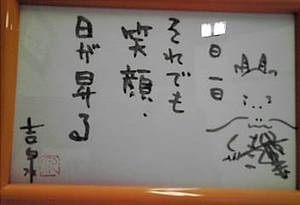 一日一日
それでも
笑顔、
日が昇る
吉泉